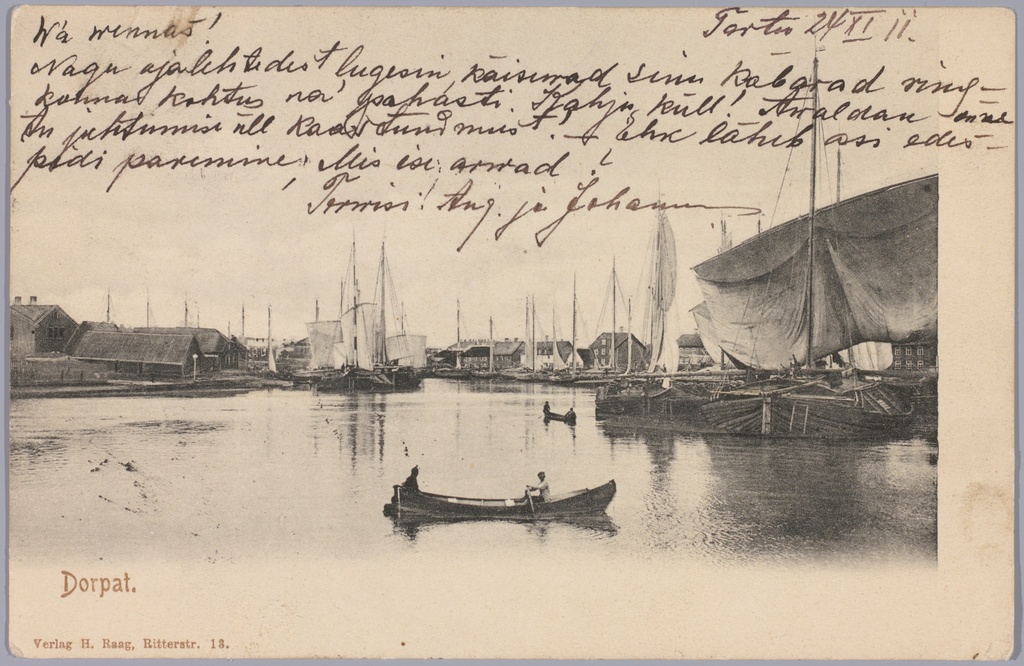 Tartu 24 XI 11.
Wa wennas!
Nagu ajalehtedest lugesin, käisiwad Sinu kabarad ring-
konna kohtus na pahasti. Kahju küll! Awaldan
juhtumise üll kaastundmust. – Ehk läheb asi edes-
pidi paremine, Mis ise arwad!
Terwisi! Aug. ja Johannes
Dorpat.
Verlag H. Raag, Ritterstr. 13.